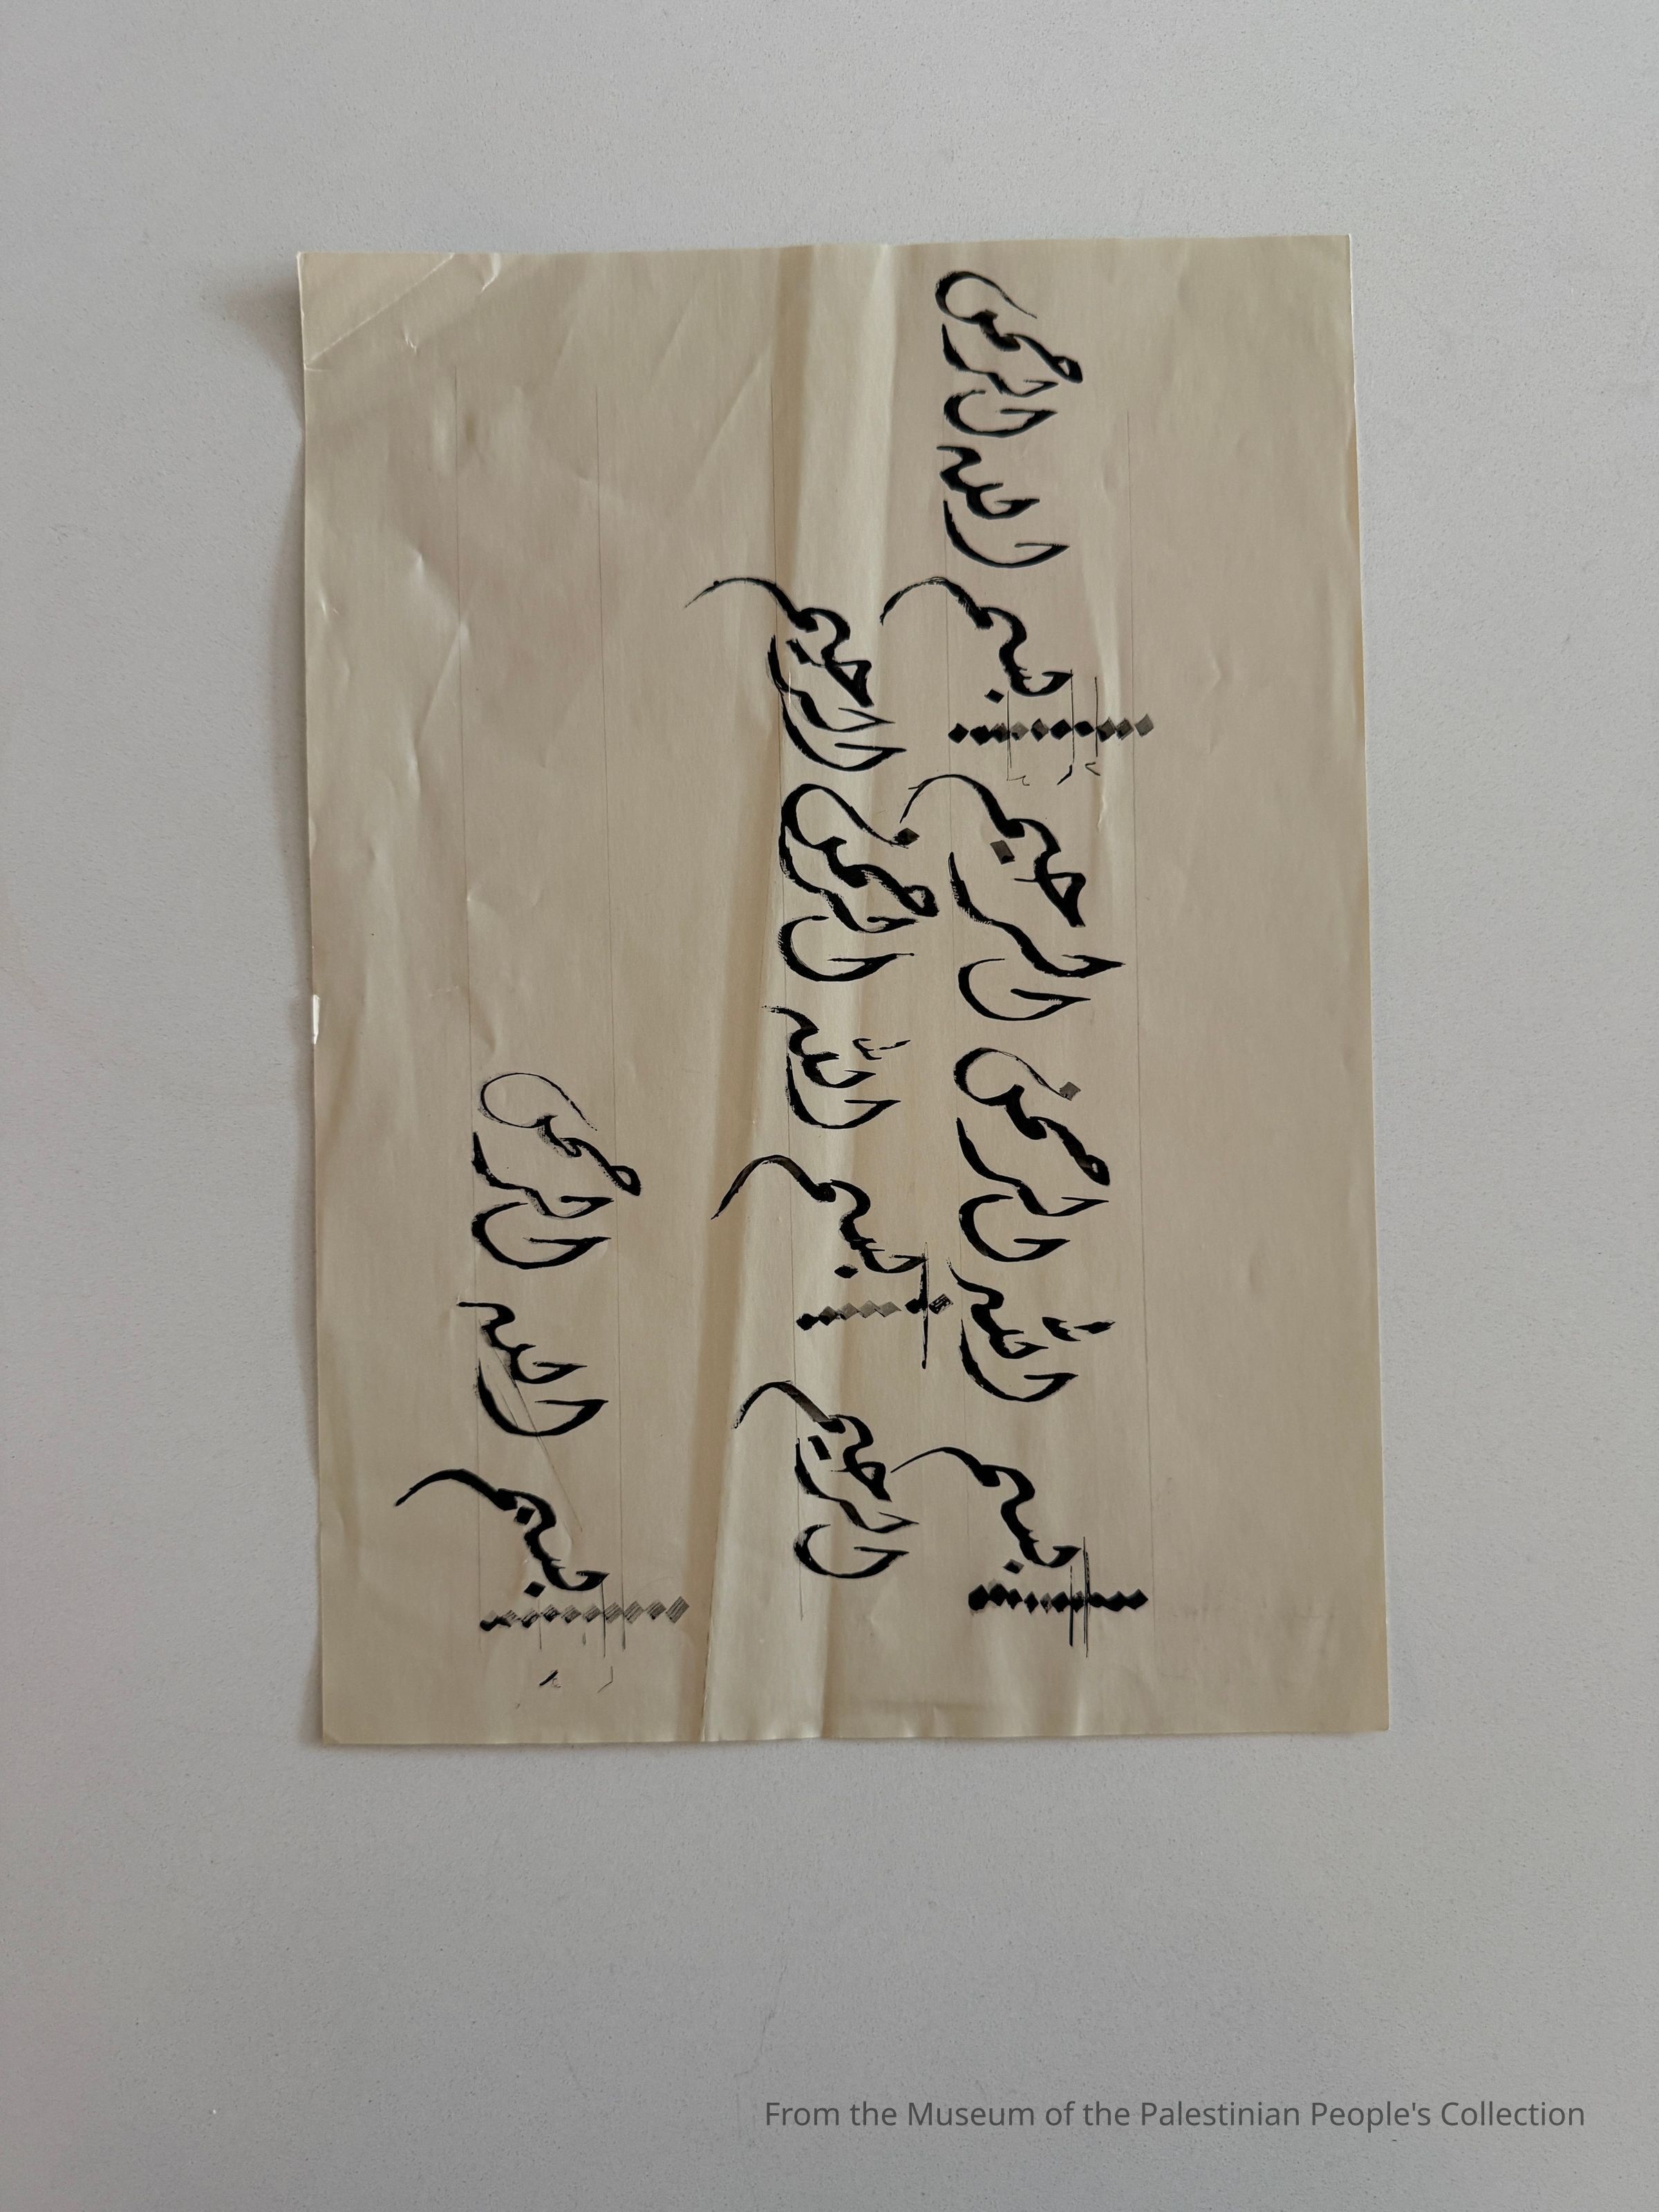 بسم اللّٰه الرحمن الرحيم بسم الله الرحمن
الرحيم بسم اللّٰه الرحمن الرحيم
بسم الله الرحمن
From the Museum of the Palestinian People's Collection